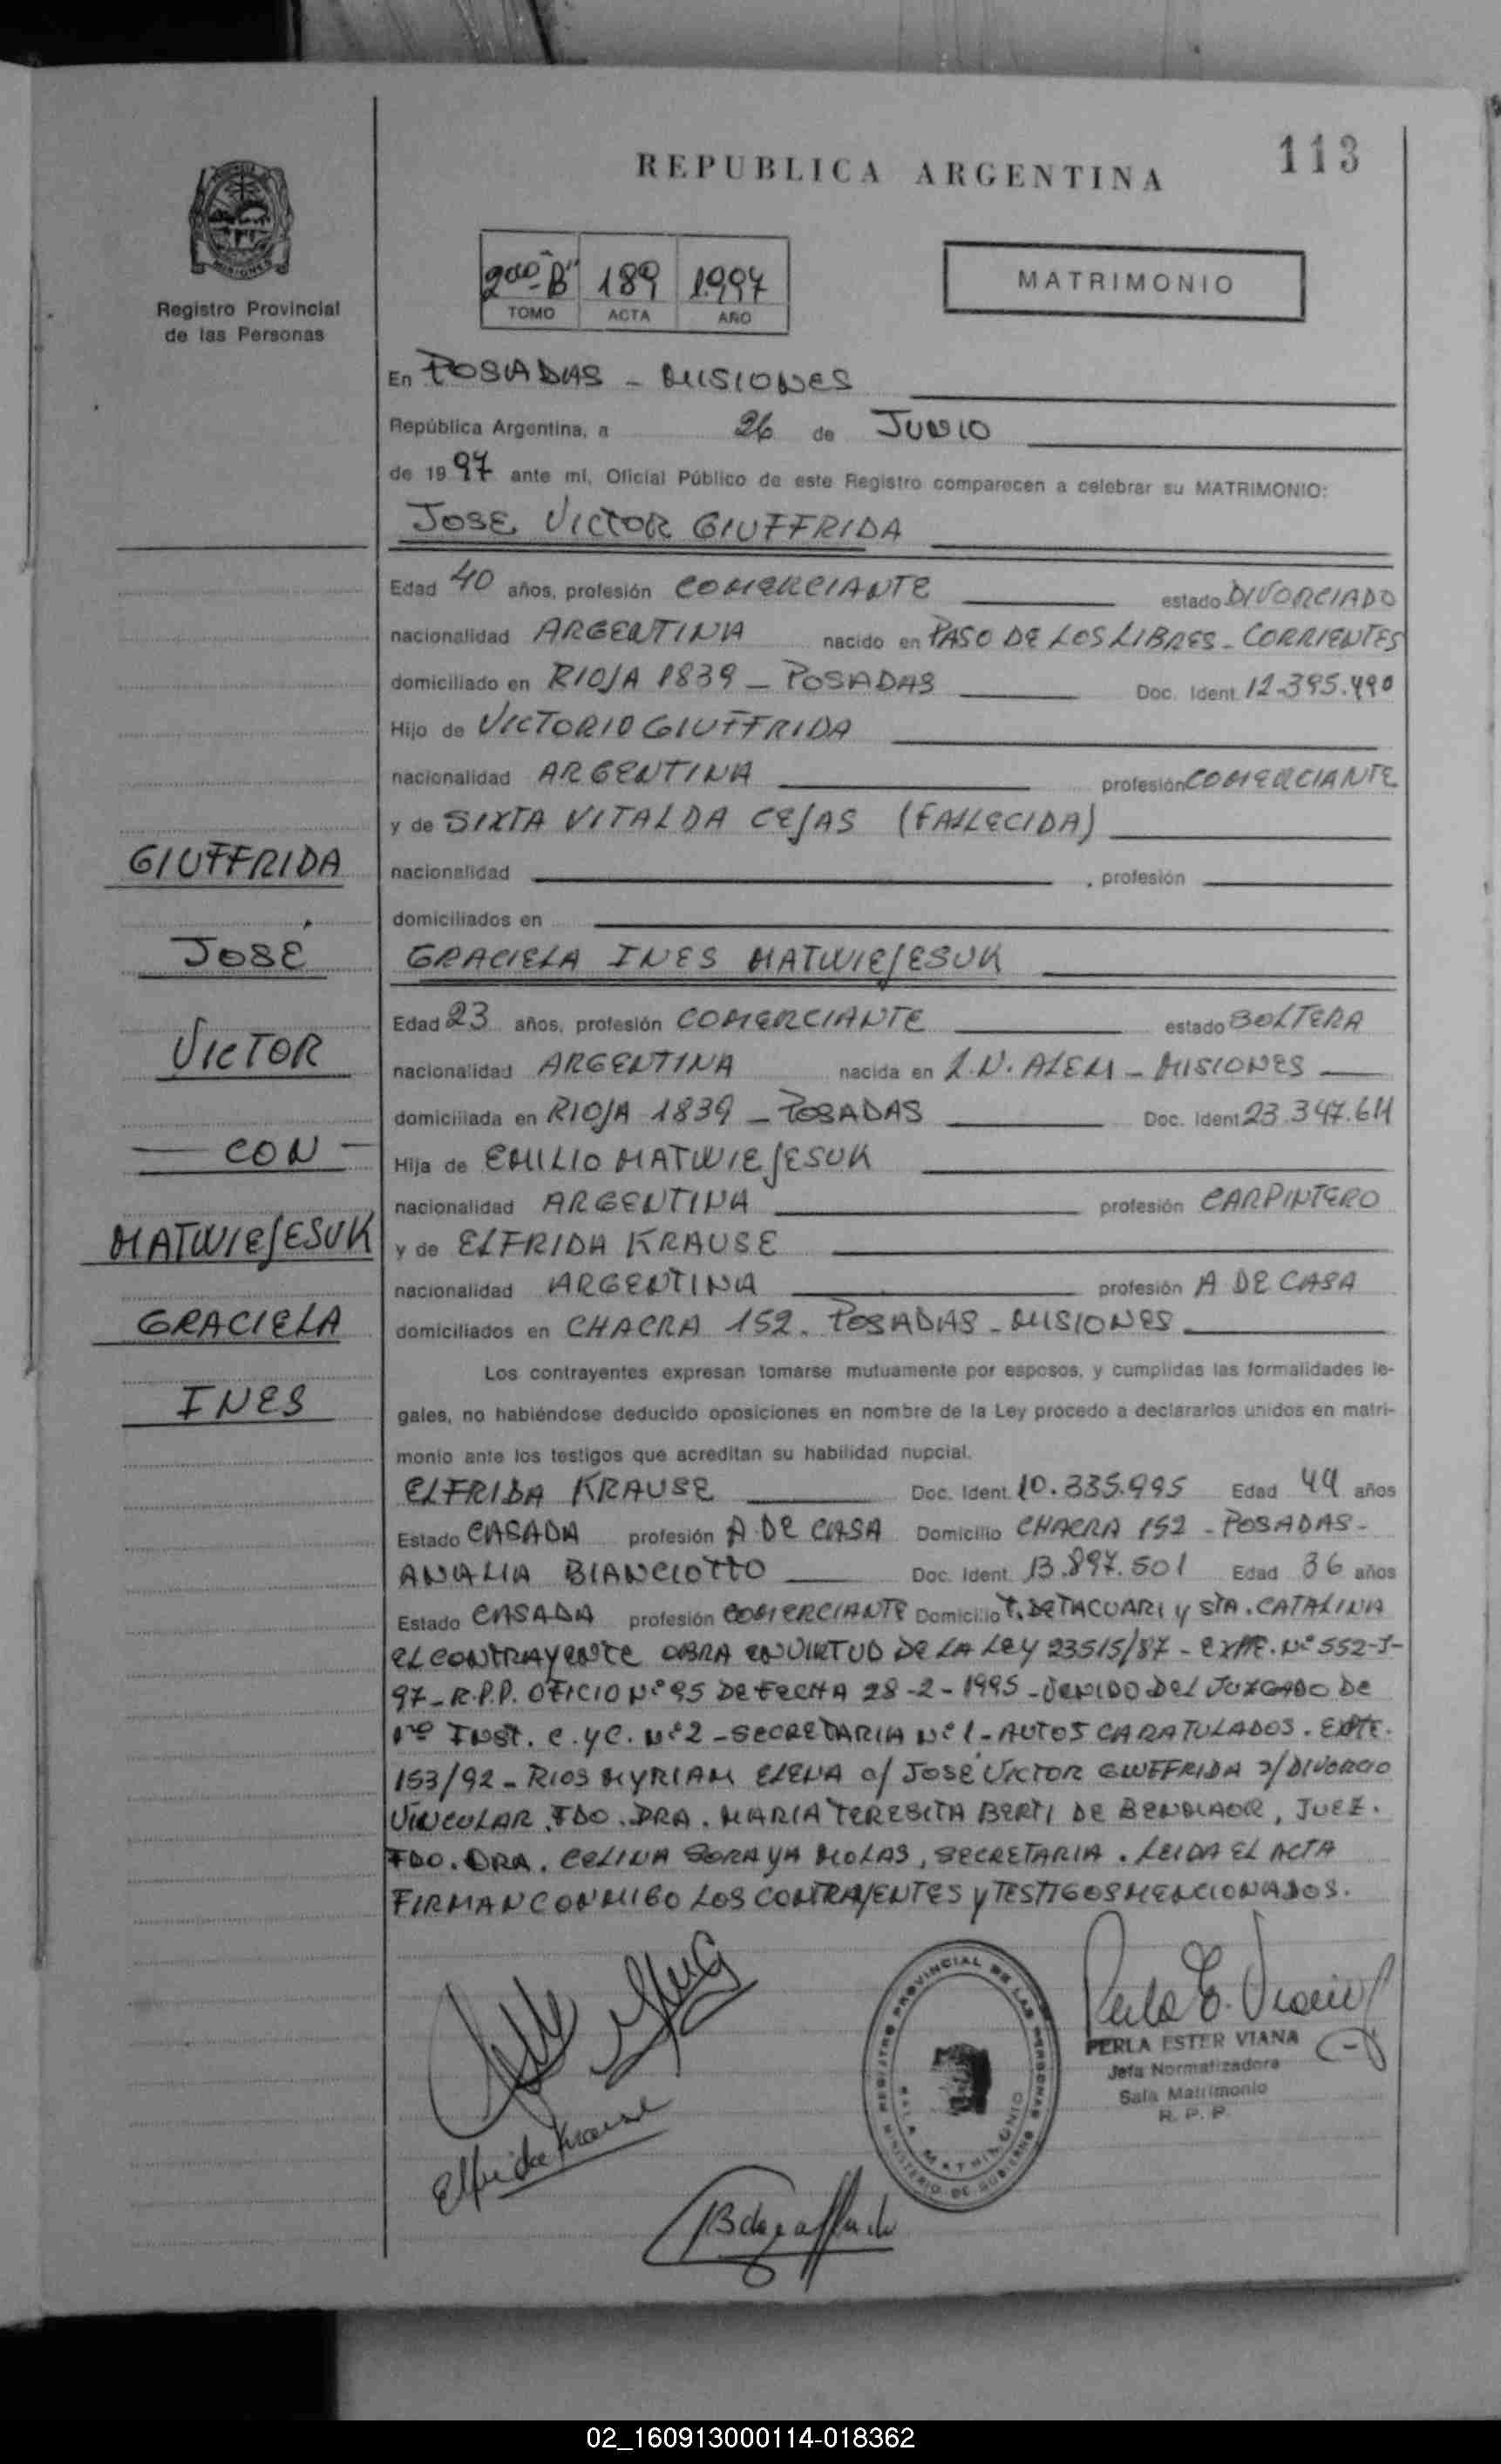 113
REPUBLICA ARGENTINA
MISIONES
Registro Provincial
de las Personas
2do "B" 189 1.997
TOMO ACTA AÑO
MATRIMONIO
En POSADAS - MISIONES
República Argentina, a 26 de JUNIO
de 1997 ante mí, Oficial Público de este Registro comparecen a celebrar su MATRIMONIO:
JOSE VICTOR GIUFFRIDA
Edad 40 años, profesión COMERCIANTE estado DIVORCIADO
nacionalidad ARGENTINA nacido en PASO DE LOS LIBRES - CORRIENTES
domiciliado en RIOJA 1839 - POSADAS Doc. Ident. 12.395.490
Hijo de VICTORIO GIUFFRIDA
nacionalidad ARGENTINA profesión COMERCIANTE
y de SIXTA VITALDA CEJAS (FALLECIDA)
nacionalidad , profesión
domiciliados en
GIUFFRIDA
JOSE
VICTOR
- CON -
MATWIEJESUK
GRACIELA
INES
GRACIELA INES MATWIEJESUK
Edad 23 años, profesión COMERCIANTE estado SOLTERA
nacionalidad ARGENTINA nacida en L.N. ALEM - MISIONES
domiciliada en RIOJA 1839 - POSADAS Doc. Ident. 23.347.611
Hija de EMILIO MATWIEJESUK
nacionalidad ARGENTINA profesión CARPINTERO
y de ELFRIDA KRAUSE
nacionalidad ARGENTINA profesión A DE CASA
domiciliados en CHACRA 152. POSADAS - MISIONES
Los contrayentes expresan tomarse mutuamente por esposos, y cumplidas las formalidades le-
gales, no habiéndose deducido oposiciones en nombre de la Ley procedo a declararlos unidos en matri-
monio ante los testigos que acreditan su habilidad nupcial.
ELFRIDA KRAUSE Doc. Ident. 10.335.995 Edad 44 años
Estado CASADA profesión A. DE CASA Domicilio CHACRA 152 - POSADAS -
ANALIA BIANCIOTTO Doc. Ident. 13.897.501 Edad 36 años
Estado CASADA profesión COMERCIANTE Domicilio T. DE TACUARI y STA. CATALINA
EL CONTRAYENTE OBRA EN VIRTUD DE LA LEY 23515/87 - EXPTE. Nº 552-J-
97 - R.P.P. OFICIO Nº 95 DE FECHA 28-2-1995 - VENIDO DEL JUZGADO DE
1ra INST. C. y C. Nº 2 - SECRETARIA Nº 1 - AUTOS CARATULADOS. EXPTE.
153/92 - RIOS MYRIAM ELENA c/ JOSÉ VICTOR GIUFFRIDA s/ DIVORCIO
VINCULAR. FDO. DRA. MARIA TERESITA BERTI DE, JUEZ.
FDO. DRA. CELINA SORAYA MOLAS, SECRETARIA. LEIDA EL ACTA
FIRMAN CONMIGO LOS CONTRAYENTES y TESTIGOS MENCIONADOS.
Elfrida Krause
REGISTRO PROVINCIAL DE LAS PERSONAS
SALA MATRIMONIO
MINISTERIO DE GOBIERNO
Perla E. Viana
PERLA ESTER VIANA
Jefa Normatizadora
Sala Matrimonio
R. P. P.
02_160913000114-018362